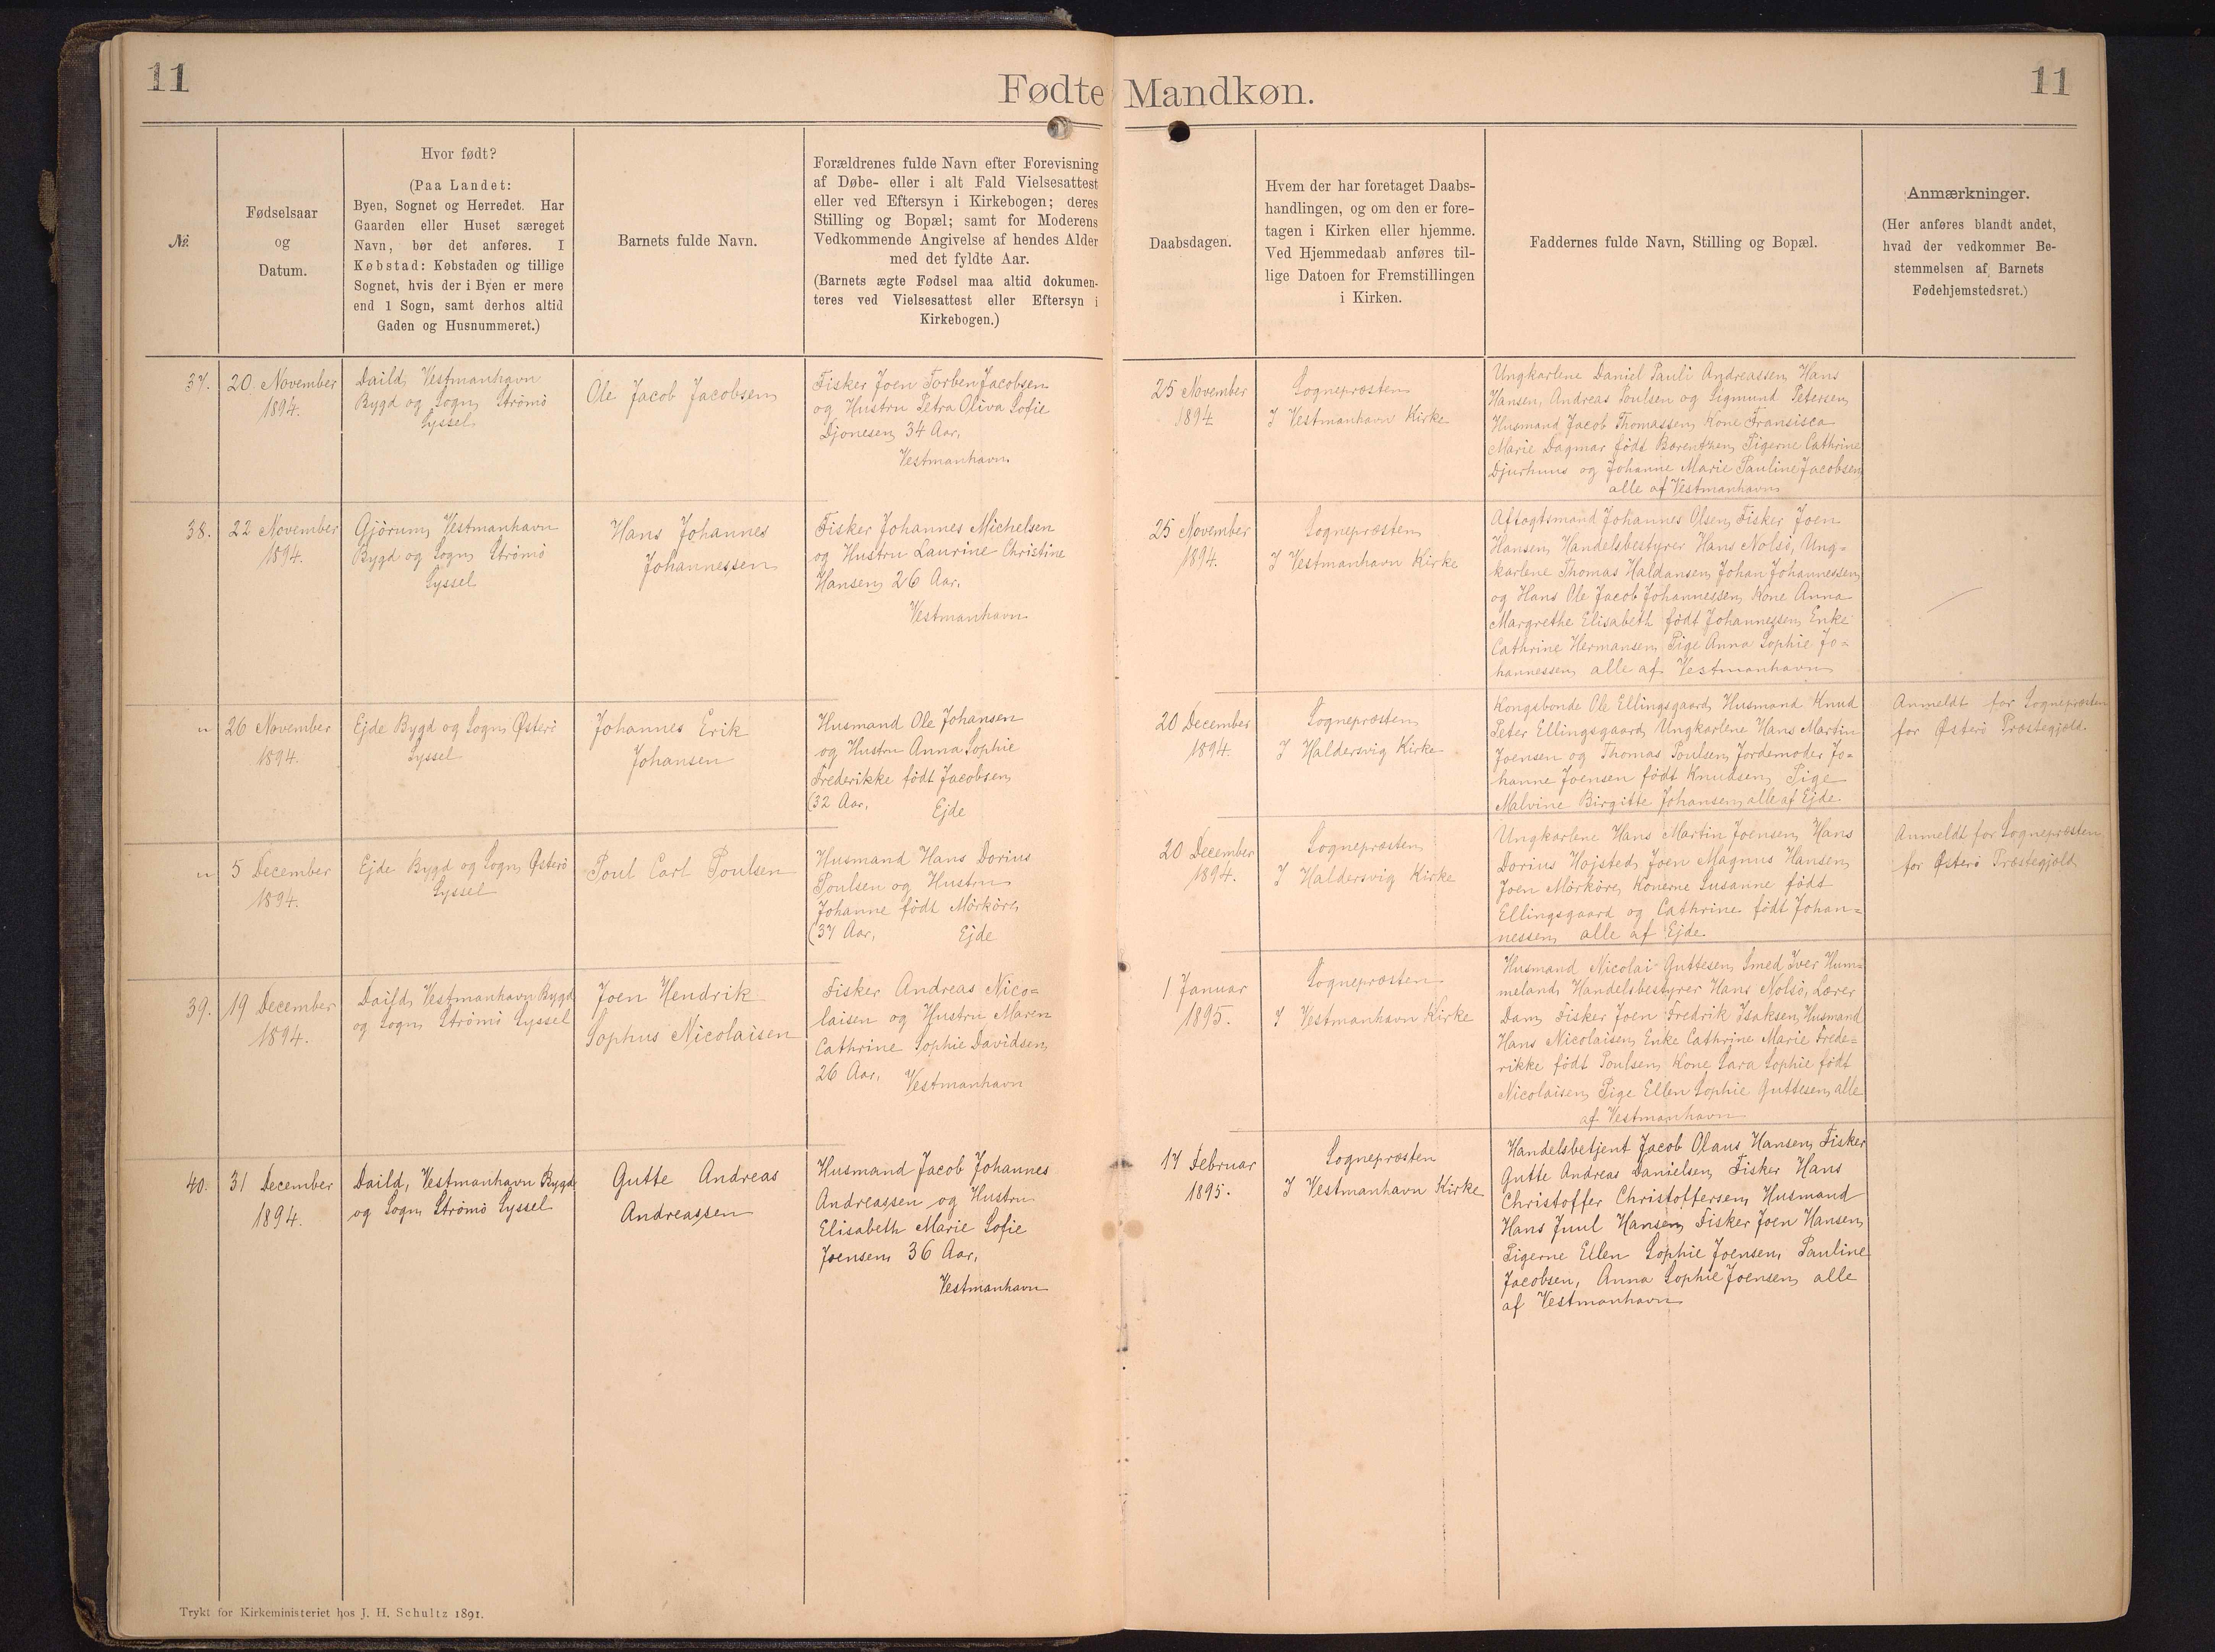 11
Fødte Mandkøn.
11
№.
Fødselsaar
og
Datum.
Hvor født?
(Paa Landet:
Byen, Sognet og Herredet. Har
Gaarden eller Huset særeget
Navn, bør det anføres. I
Købstad: Købstaden og tillige
Sognet, hvis der i Byen er mere
end 1 Sogn, samt derhos altid
Gaden og Husnummeret.)
Barnets fulde Navn.
Forældrenes fulde Navn efter Forevisning
af Døbe- eller i alt Fald Vielsesattest
eller ved Eftersyn i Kirkebogen; deres
Stilling og Bopæl; samt for Moderens
Vedkommende Angivelse af hendes Alder
med det fyldte Aar.
(Barnets ægte Fødsel maa altid dokumen-
teres ved Vielsesattest eller Eftersyn i
Kirkebogen.)
Daabsdagen.
Hvem der har foretaget Daabs-
handlingen, og om den er fore-
tagen i Kirken eller hjemme.
Ved Hjemmedaab anføres til-
lige Datoen for Fremstillingen
i Kirken.
Faddernes fulde Navn, Stilling og Bopæl.
Anmærkninger.
(Her anføres blandt andet,
hvad der vedkommer Be-
stemmelsen af Barnets
Fødehjemstedsret.)
37.
20. November
1894.
Daild, Vestmanhavn
Bygd og Sogn, Strömö
Syssel
Ole Jacob Jacobsen
Fisker Joen Torben Jacobsen
og Hustru Petra Oliva Sofie
Djonesen, 34 Aar,
Vestmanhavn.
25 November
1894
Sognepræsten
I Vestmanhavn Kirke
Ungkarlene Daniel Pauli Andreassen, Hans
Hansen, Andreas Poulsen og Sigmund Petersen,
Husmand Jacob Thomassen, Kone Fransisca
Marie Dagmar født Barentzen, Pigerne Cathrine
Djurhuus og Johanne Marie Pauline Jacobsen
alle af Vestmanhavn
38.
22 November
1894.
Gjörum, Vestmanhavn
Bygd og Sogn, Strömö
Syssel
Hans Johannes
Johannessen
Fisker Johannes Michelsen
og Hustru Laurine Christine
Hansen, 26 Aar,
Vestmanhavn
25 November
1894.
Sognepræsten
I Vestmanhavn Kirke
Aftagtsmand Johannes Olsen, Fisker Joen
Hansen, Handelsbestyrer Hans Nolsö, Ung=
karlene Thomas Haldansen, Johan Johannessen,
og Hans Ole Jacob Johannessen, Kone Anna
Margrethe Elisabeth født Johannessen, Enke
Cathrine Hermansen, Pige Anna Sophie Jo=
hannessen, alle af Vestmanhavn
"
26 November
1894.
Ejde Bygd og Sogn, Østerö
Syssel
Johannes Erik
Johansen
Husmand Ole Johansen
og Hustru Anna Sophie
Frederikke født Jacobsen,
(32 Aar,
Ejde
20 December
1894.
Sognepræsten
I Haldersvig Kirke
Kongsbonde Ole Ellingsgaard, Husmand Knud
Peter Ellingsgaard, Ungkarlene Hans Martin
Joensen og Thomas Poulsen, Jordemoder Jo=
hanne Joensen født Knudsen, Pige
Malvine Birgitte Johansen, alle af Ejde.
Anmeldt for Sognepræsten
for Østerö Præstegjæld.
"
5 December
1894.
Ejde Bygd og Sogn, Østerö
Syssel
Poul Carl Poulsen
Husmand Hans Dorius
Poulsen og Hustru
Johanne født Mörköre,
(37 Aar,
Ejde
20 December
1894.
Sognepræsten
I Haldersvig Kirke
Ungkarlene Hans Martin Joensen, Hans
Dorius Højsted, Joen Magnus Hansen,
Joen Mörköre, Konerne Susanne født
Ellingsgaard og Cathrine født Johan=
nessen, alle af Ejde.
Anmeldt for Sognepræsten,
for Østerö Præstegjæld
39.
19 December
1894.
Daild, Vestmanhavn Bygd
og Sogn Strömö Syssel
Joen Hendrik
Sophus Nicolaisen
Fisker Andreas Nico=
laisen og Hustru Maren
Cathrine Sophie Davidsen,
26 Aar,
Vestmanhavn
1 Januar
1895.
Sognepræsten
I Vestmanhavn Kirke
Husmand Nicolai Guttesen, Smed Iver Hum=
meland, Handelsbestyrer Hans Nolsö, Lærer
Dam, Fisker Joen Fredrik Isaksen, Husmand
Hans Nicolaisen, Enke Cathrine Marie Frede=
rikke født Poulsen, Kone Sara Sophie født
Nicolaisen, Pige Ellen Sophie Guttesen, alle
af Vestmanhavn
40.
31 December
1894.
Daild, Vestmanhavn Bygd
og Sogn, Strömö Syssel
Gutte Andreas
Andreassen
Husmand Jacob Johannes
Andreassen og Hustru
Elisabeth Marie Sofie
Joensen, 36 Aar,
Vestmanhavn
17 Februar
1895.
Sognepræsten
I Vestmanhavn Kirke
Handelsbetjent Jacob Olaus Hansen, Fisker
Gutte Andreas Danielsen, Fisker Hans
Christoffer Christoffersen, Husmand
Hans Juul Hansen, Fisker Joen Hansen,
Pigerne Ellen Sophie Joensen, Pauline
Jacobsen, Anna Sophie Joensen, alle
af Vestmanhavn
Trykt for Kirkeministeriet hos J. H. Schultz 1891.